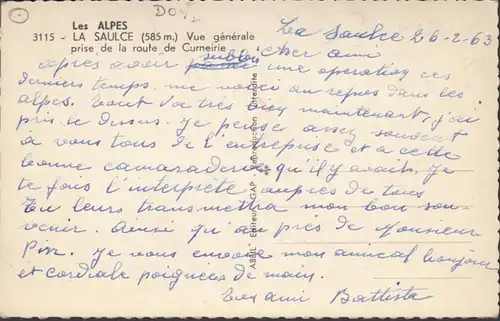 Les ALPES
3115 - LA SAULCE (585 m.) Vue générale
prise de la route de Curneirie
La Saulce 26-2-63
Cher ami
après avoir subbit une operation ces
derniers temps. me voici au repos dans les
alpes. tout va très bien maintenant, j'ai
pris le dessus. je pense assez souvent
à vous tous de l'entreprise et a cette
bonne camaraderie qu'il y avait. Je
te fais l'interprète auprès de tous
tu leurs transmettra mon bon sou-
venir. Ainsi qu'au près de Monsieur
je vous envoie mon amical bonjour
et cordiale poignees de main.
ton ami Battista
ABRIL Editeur GAP Reproduction interdite